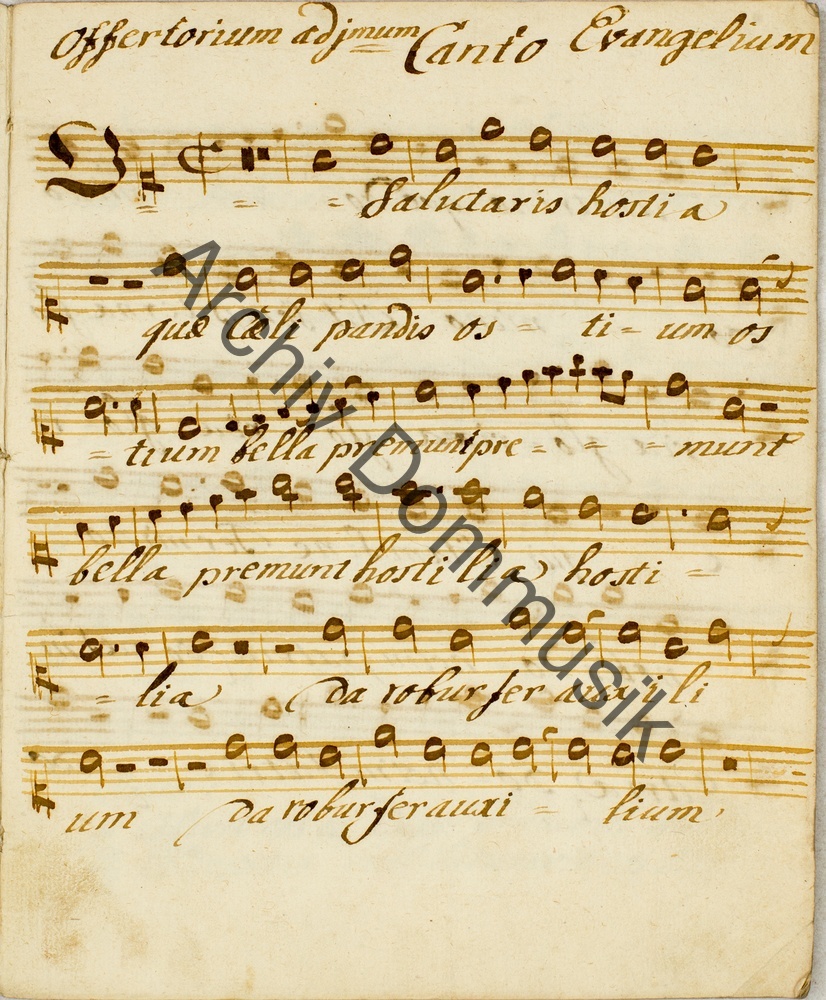 Offertorium ad jmum Canto Evangelium
O Salutaris hostia
quæ Cæli pandis os - ti - um os
- tium bella premunt pre - - - munt
bella premunt hosti lia hosti -
- lia da robur fer auxi li
um da robur fer auxi - lium
Archiv Dommusik